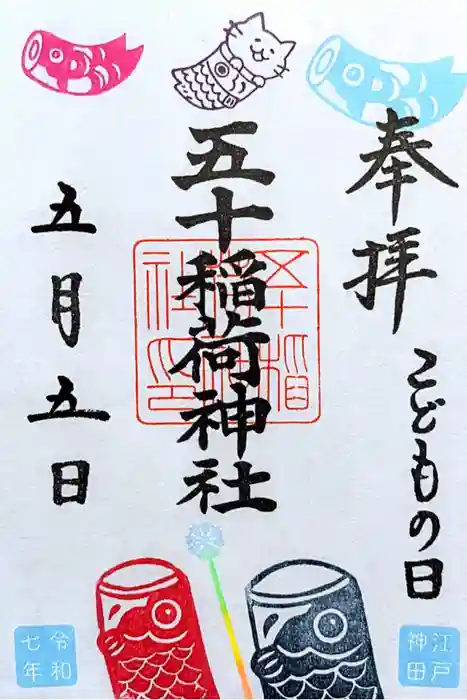 奉拝
こどもの日
五十稲荷神社
五月五日
江戸神田
令和七年